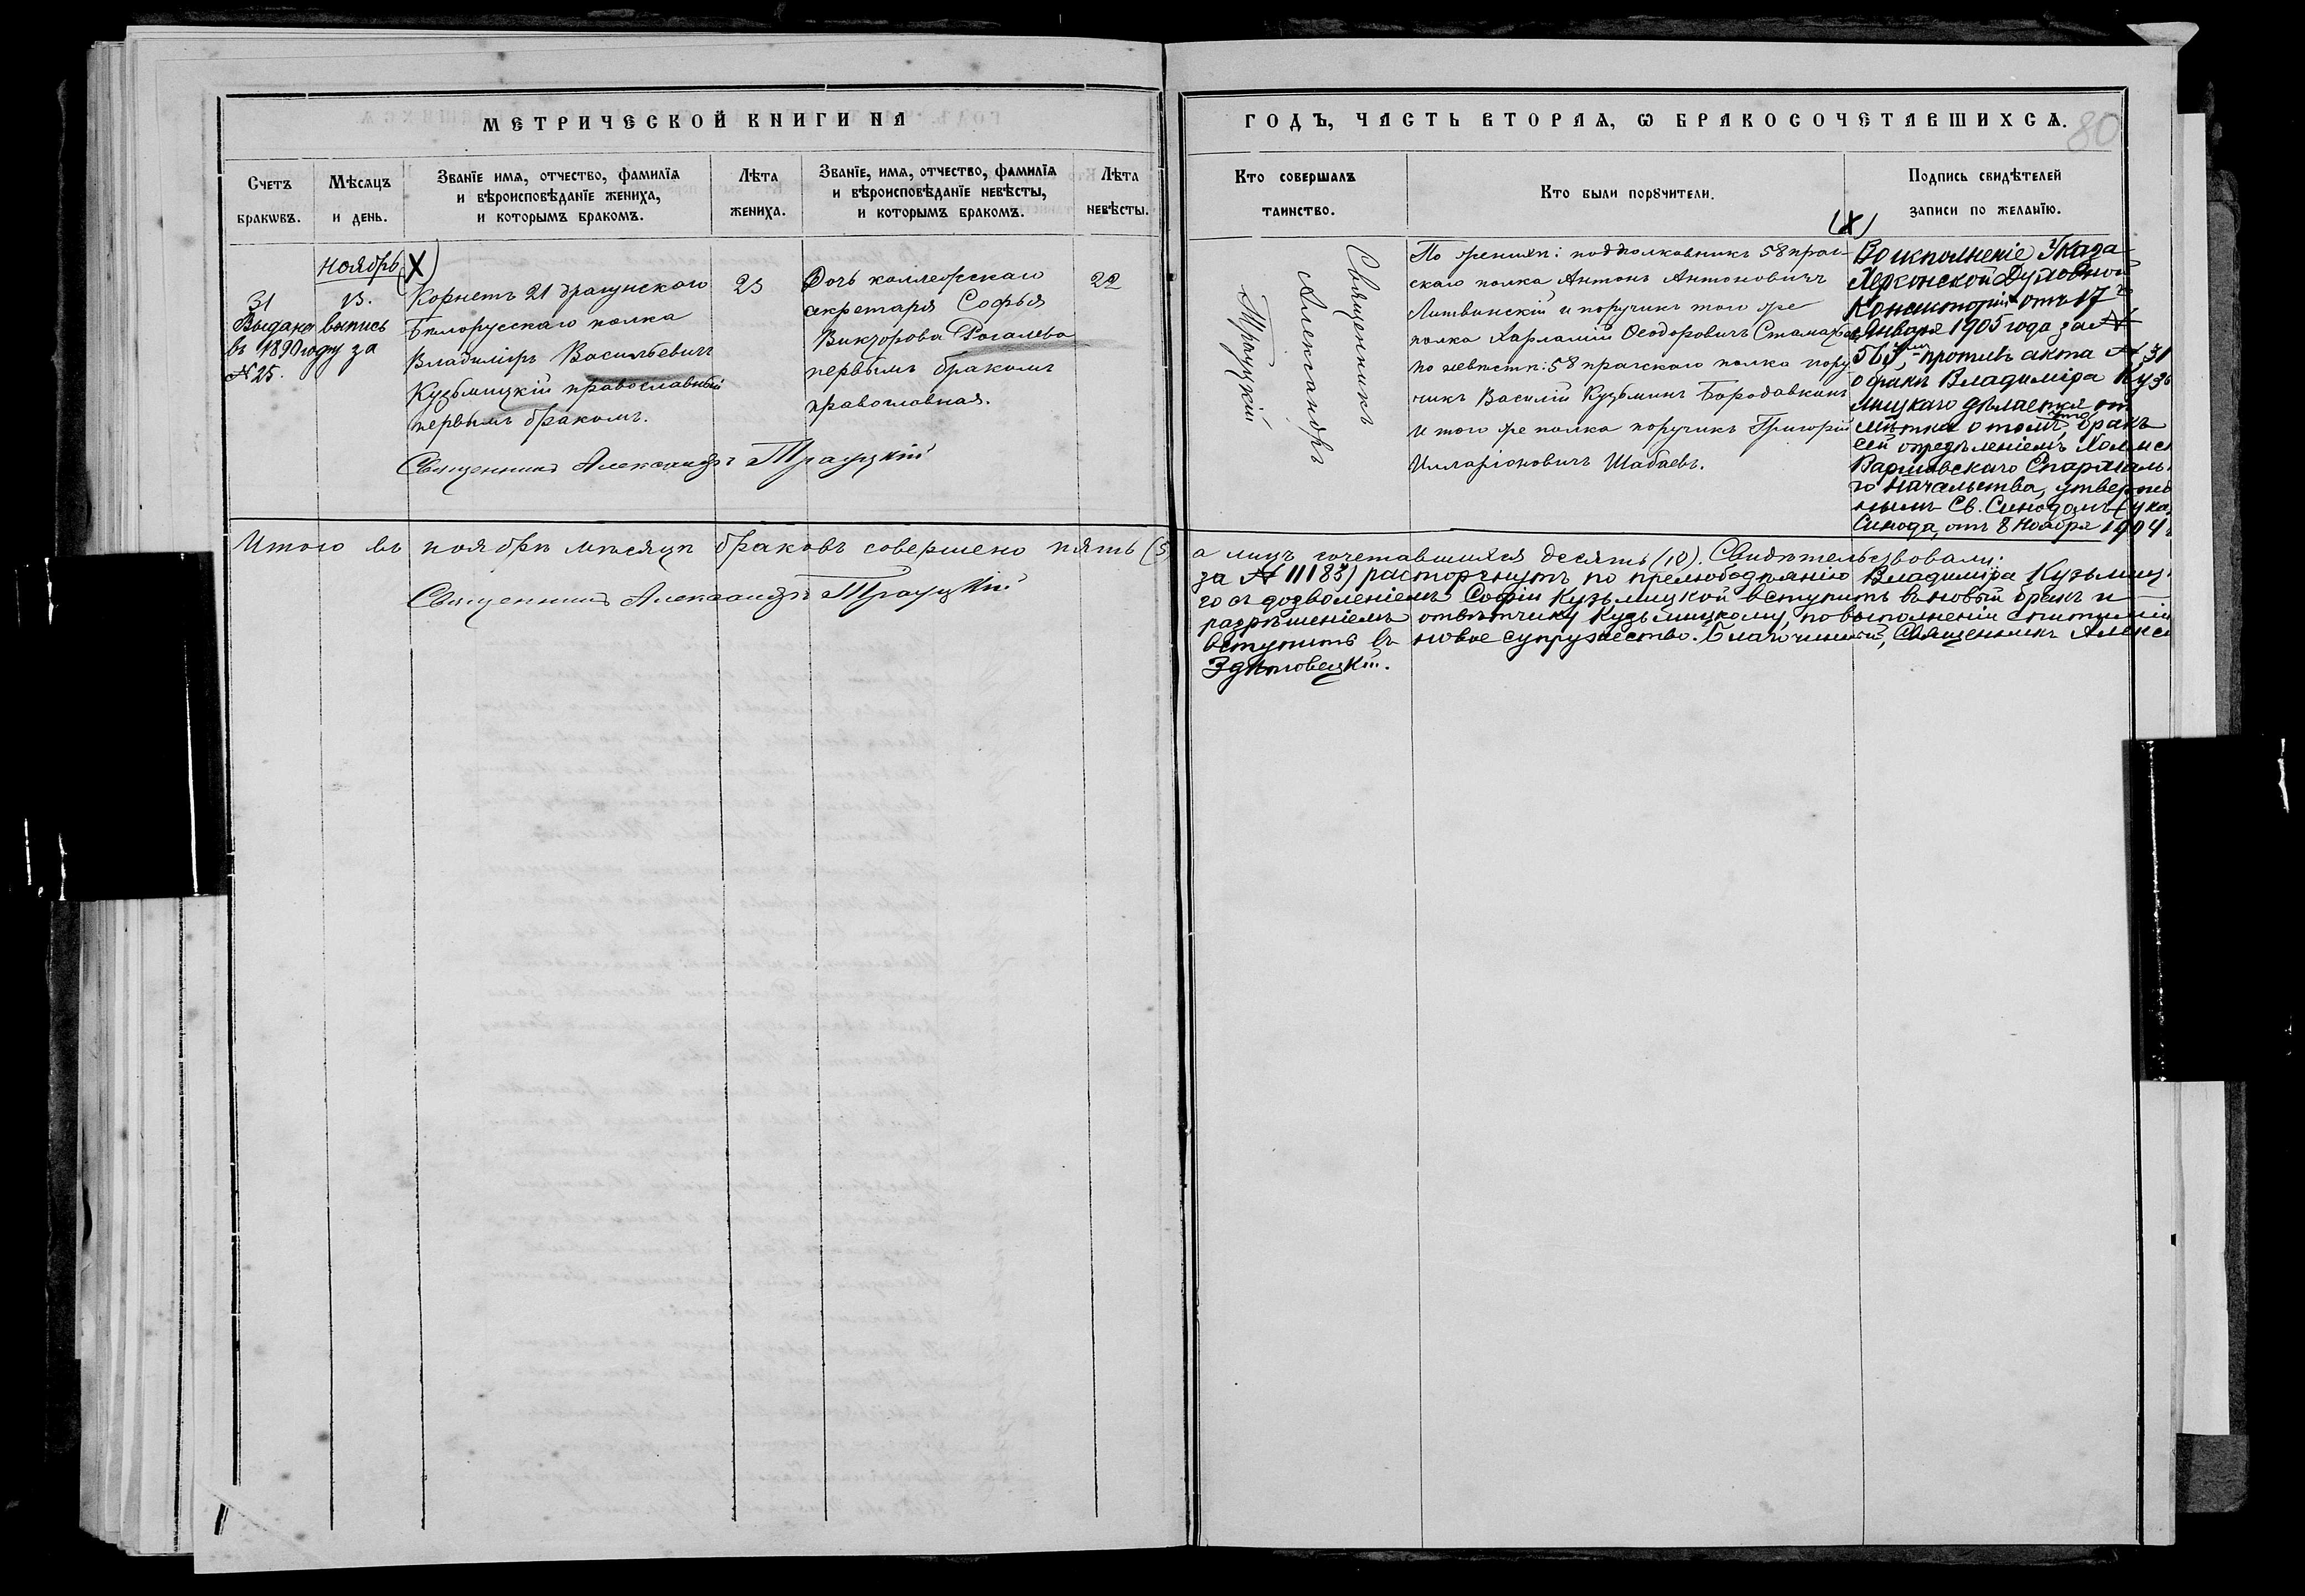 МЕТРИЧЕСКОЙ КНИГИ НА
ГОДЪ, ЧАСТЬ ВТОРАЯ, Ѡ БРАКОСОЧЕТАВШИХСЯ.
80
Счетъ браковъ.
Мѣсяцъ и день.
Званїе имя, отчество, фамилїя и вѣроисповѣданїе жениха, и которымъ бракомъ.
Лѣта жениха.
Званїе, имя, отчество, фамилїя и вѣроисповѣданїе невѣсты, и которымъ бракомъ.
Лѣта невѣсты.
Кто совершалъ таинство.
Кто были порꙋчители.
Подпись свидѣтелей записи по желанїю.
Ноябрь
31
13.
Выдана выпись
въ 1890 году за
№ 25.
(X)
Корнетъ 21 драгунскаго
Бѣлорусскаго полка
Владиміръ Васильевичъ
Кузьмицкій православный
первымъ бракомъ.
23
Дочь коллежскаго
секретаря Софья
Викторова Рогалева
первымъ бракомъ
православная.
22
Священникъ Александръ Трауцкій
Священникъ
Александръ
Трауцкій
По женихѣ: подполковникъ 58 праж-
скаго полка Антонъ Антоновичъ
Литвинскій и поручикъ того же
полка Харлампій Ѳеодоровичъ
по невѣстѣ: 58 пражскаго полка пору-
чикъ Василій Кузьминъ Бородавкинъ
и того же полка поручикъ Григорій
Илларіоновичъ Шабаевъ.
(X)
Во исполненіе Указа
Херсонской Духовной
Консисторіи отъ 17
Января 1905 года за №
противъ акта № 31
о бракѣ Владиміра Кузь
мицкаго дѣлается от
мѣтка о томъ, что бракъ
сей опредѣленіемъ Холмск
Варшавскаго Епархіаль
го Начальства, утвержд
нымъ Св. Синодомъ (ука
Синода, отъ 8 Ноября 1904
Итого въ ноябрѣ мѣсяцѣ браковъ совершено пять (5
а лицъ сочетавшихся десять (10). Свидѣтельствовали:
Священникъ Александръ Трауцкій
за № 11183) расторгнутъ по прелюбодѣянію Владиміра Кузьмиц
го съ дозволеніемъ Софіи Кузьмицкой вступить въ новый бракъ и
разрѣшеніемъ отвѣтчику Кузьмицкому, по выполненіи епитиміи
вступить въ новое супружество. Благочинный, Священникъ Алекс
Здѣтовецкій.